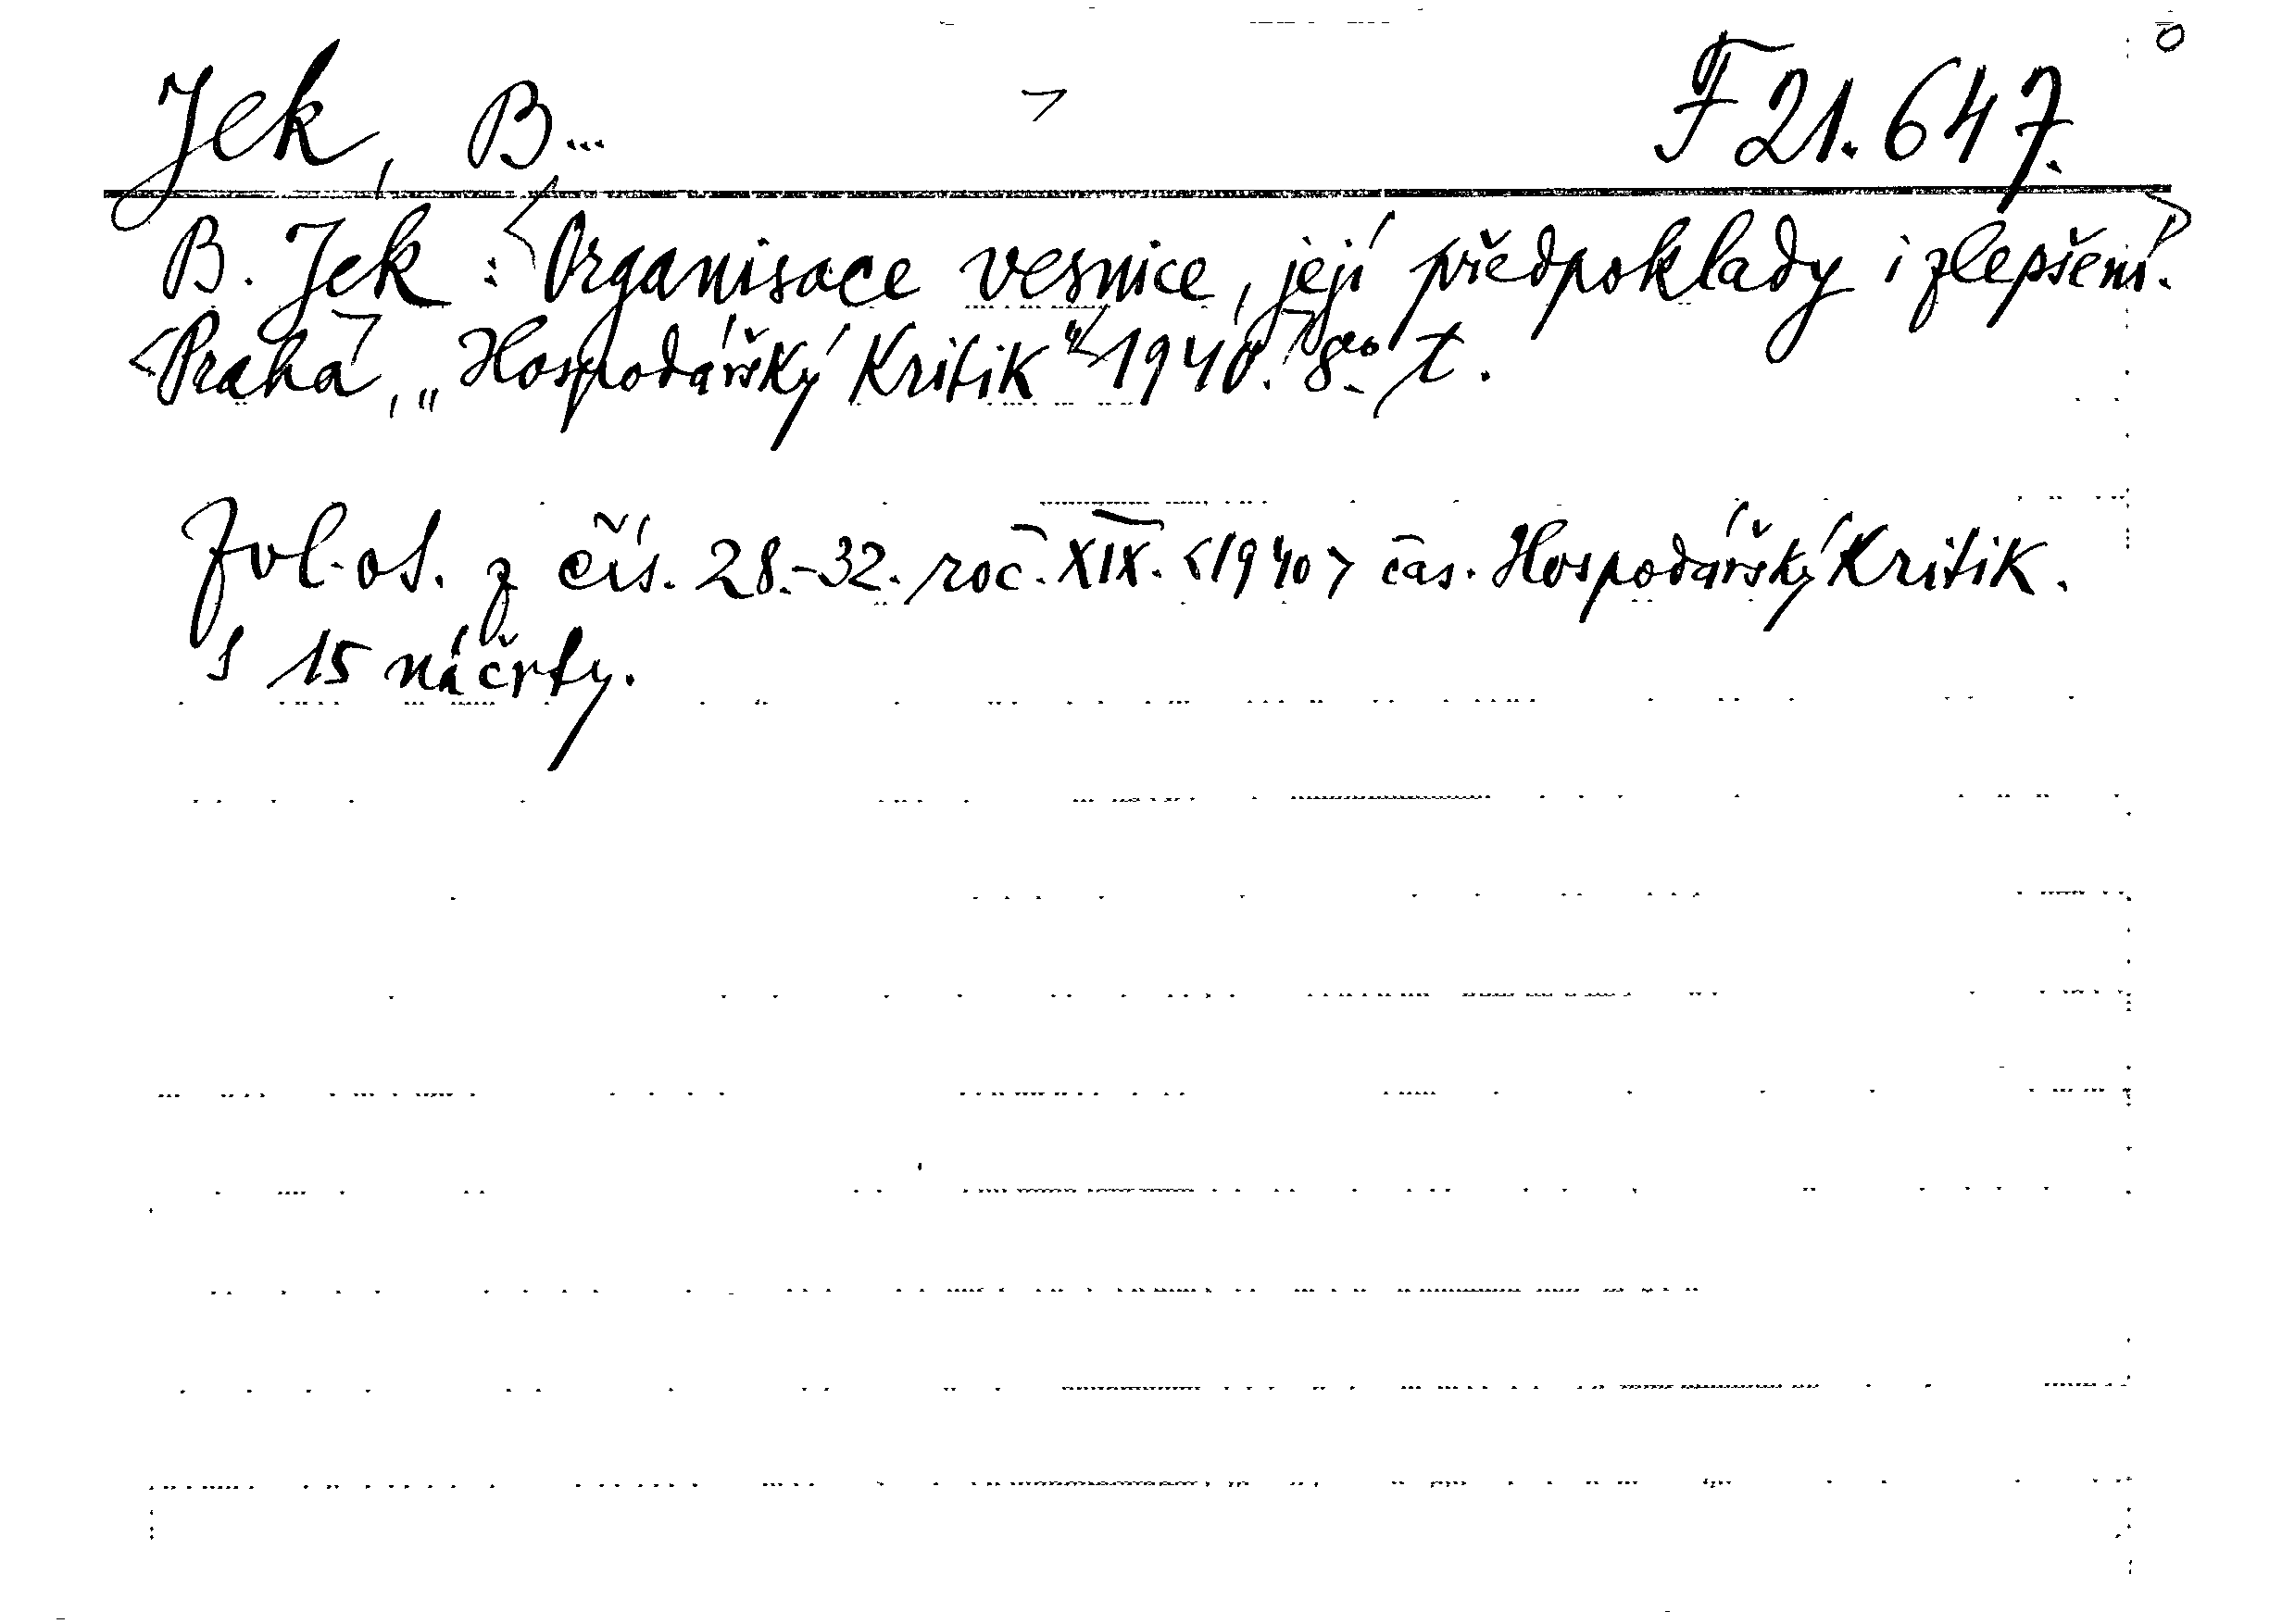 Jek, B... F 21.647.
B. Jek: <Organisace vesnice, její předpoklady i zlepšení.>
<Praha>, „Hospodářský Kritik“ <1940.> 8° t.
Zvl. ot. z čís. 28.-32. roč. XIX. <1940> čas. Hospodářský Kritik.
S 15 náčrty.